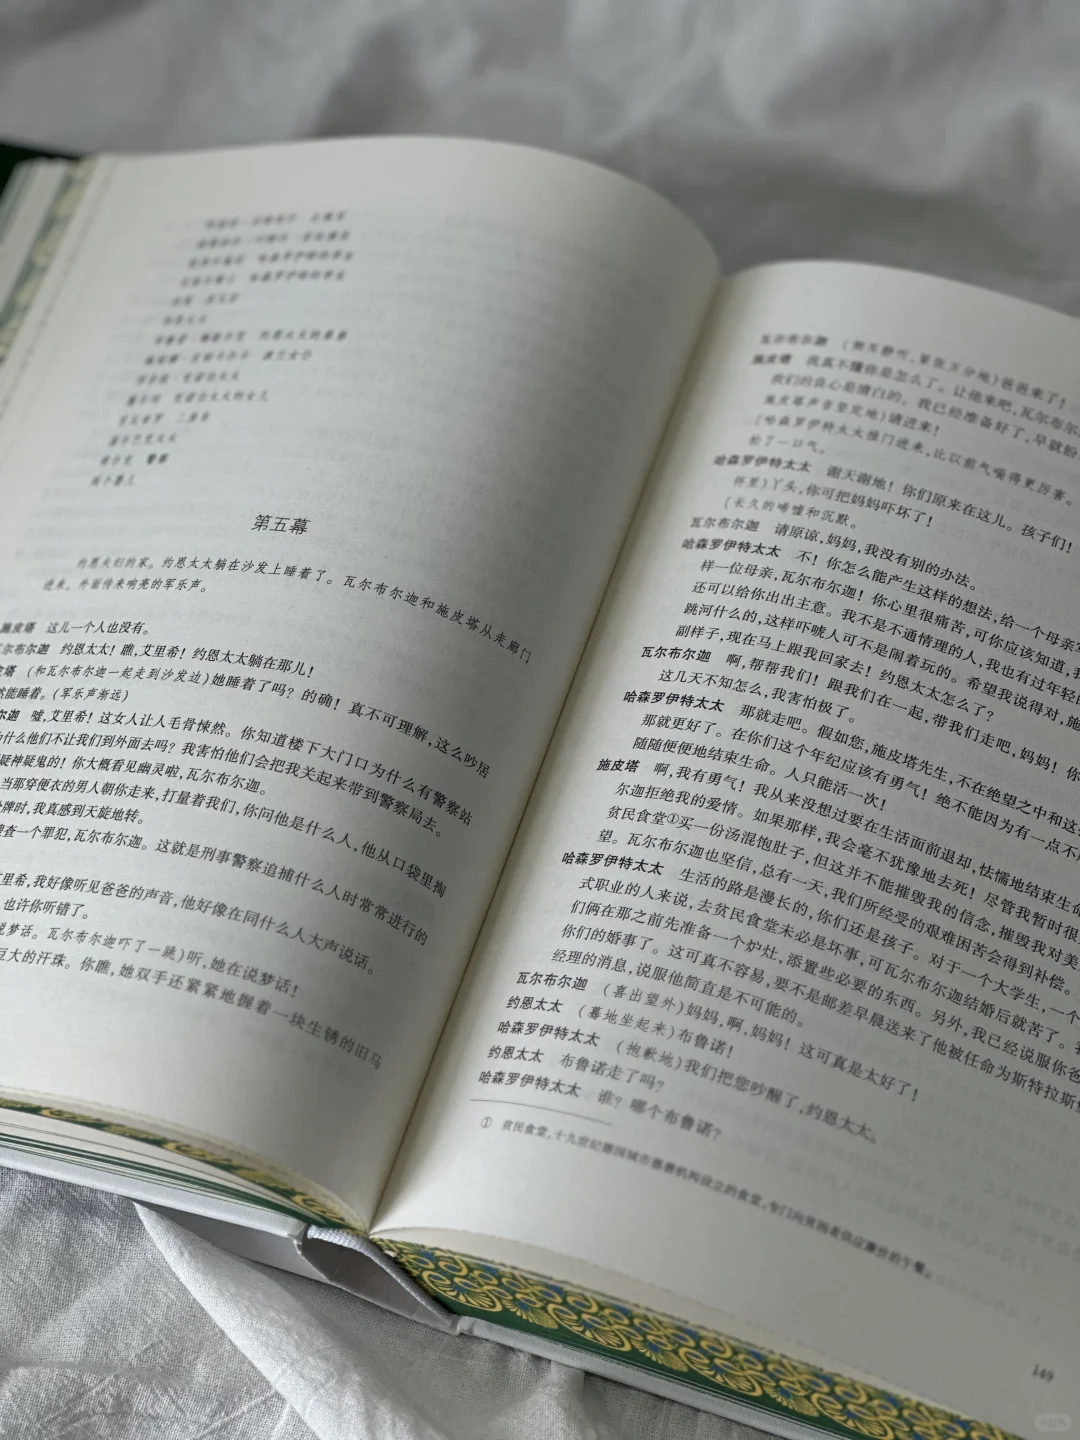 哈森罗伊特的学生
哈森罗伊特的学生
约恩太太的弟弟
两个婴儿
第五幕
约恩夫妇的家。约恩太太躺在沙发上睡着了。瓦尔布尔迦和施皮塔从走廊门
进来。外面传来响亮的军乐声。
施皮塔 这儿一个人也没有。
瓦尔布尔迦 约恩太太!瞧,艾里希!约恩太太躺在那儿!
皮塔 (和瓦尔布尔迦一起走到沙发边)她睡着了吗?的确!真不可理解,这么吵居
然能睡着。(军乐声渐远)
尔迦 嘘,艾里希!这女人让人毛骨悚然。你知道楼下大门口为什么有警察站
为什么他们不让我们到外面去吗?我害怕他们会把我关起来带到警察局去。
疑神疑鬼的!你大概看见幽灵啦,瓦尔布尔迦。
当那穿便衣的男人朝你走来,打量着我们,你问他是什么人,他从口袋里掏
牌时,我真感到天旋地转。
查一个罪犯,瓦尔布尔迦。这就是刑事警察追捕什么人时常常进行的
艾里希,我好像听见爸爸的声音,他好像在同什么人大声说话。
也许你听错了。
说梦话。瓦尔布尔迦吓了一跳)听,她在说梦话!
巨大的汗珠。你瞧,她双手还紧紧地握着一块生锈的旧马
瓦尔布尔迦 (侧耳静听,紧张万分地)爸爸来了!
施皮塔 我真不懂你是怎么了。让他来吧,瓦尔布尔
我们的良心是清白的。我已经准备好了,早就盼
施皮塔声音坚定地)请进来!
(哈森罗伊特太太推门进来,比以前气喘得更厉害。
松了一口气。
哈森罗伊特太太 谢天谢地!你们原来在这儿。孩子们!
怀里)丫头,你可把妈妈吓坏了!
(长久的唏嘘和沉默。
瓦尔布尔迦 请原谅,妈妈,我没有别的办法。
哈森罗伊特太太 不!你怎么能产生这样的想法,给一个母亲写
样一位母亲,瓦尔布尔迦!你心里很痛苦,可你应该知道,我
还可以给你出出主意。我不是不通情理的人,我也有过年轻
跳河什么的,这样吓唬人可不是闹着玩的。希望我说得对,施
副样子,现在马上跟我回家去!约恩太太怎么了?
瓦尔布尔迦 啊,帮帮我们!跟我们在一起,带我们走吧,妈妈!你
这几天不知怎么,我害怕极了。
哈森罗伊特太太 那就走吧。假如您,施皮塔先生,不在绝望之中和这
那就更好了。在你们这个年纪应该有勇气!绝不能因为有一点不
随随便便地结束生命。人只能活一次!
施皮塔 啊,我有勇气!我从来没想过要在生活面前退却,怯懦地结束生命
尔迦拒绝我的爱情。如果那样,我会毫不犹豫地去死!尽管我暂时很
贫民食堂①买一份汤混饱肚子,但这并不能摧毁我的信念,摧毁我对美
望。瓦尔布尔迦也坚信,总有一天,我们所经受的艰难困苦会得到补偿。
哈森罗伊特太太 生活的路是漫长的,你们还是孩子。对于一个大学生,一个
式职业的人来说,去贫民食堂未必是坏事,可瓦尔布尔迦结婚后就苦了。
们俩在那之前先准备一个炉灶,添置些必要的东西。另外,我已经说服你爸
你们的婚事了。这可真不容易,要不是邮差早晨送来了他被任命为斯特拉斯堡
经理的消息,说服他简直是不可能的。
瓦尔布尔迦 (喜出望外)妈妈,啊,妈妈!这可真是太好了!
约恩太太 (蓦地坐起来)布鲁诺!
哈森罗伊特太太 (抱歉地)我们把您吵醒了,约恩太太。
约恩太太 布鲁诺走了吗?
哈森罗伊特太太 谁?哪个布鲁诺?
① 贫民食堂,十九世纪德国城市慈善机构设立的食堂,专门向贫困者供应廉价的午餐。
149